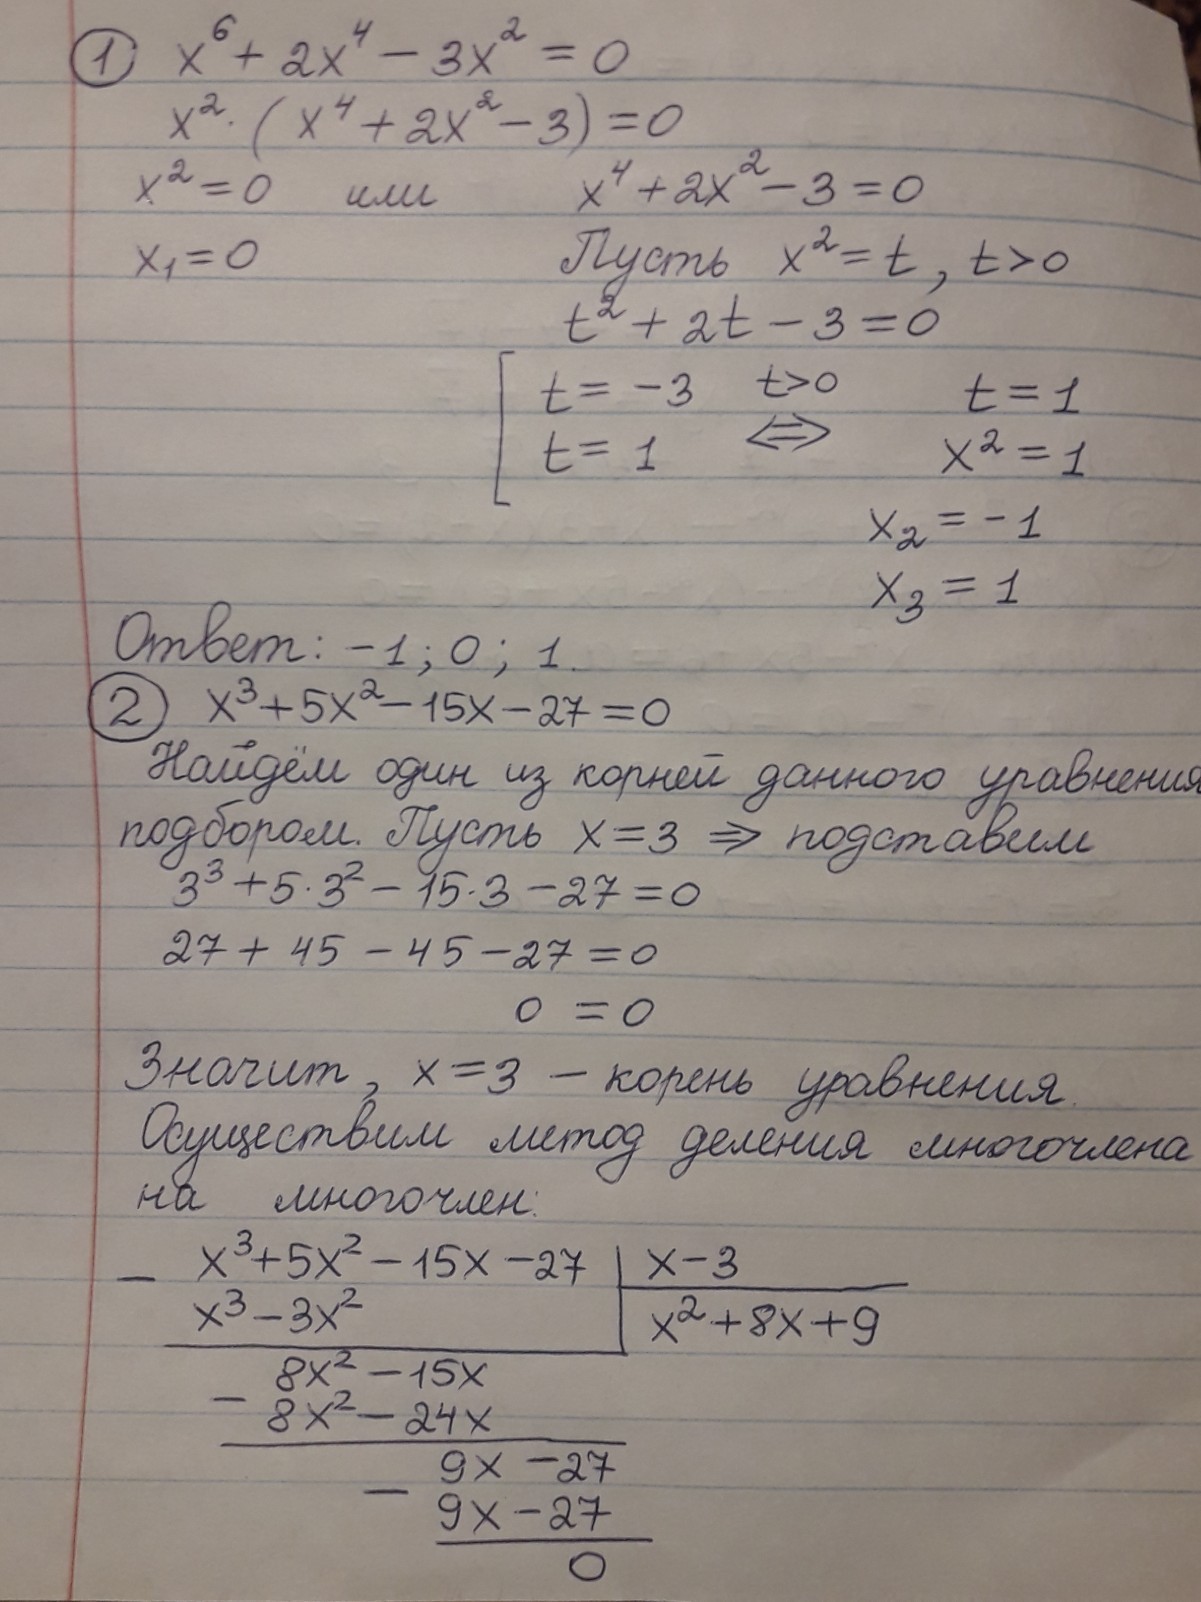 1 x⁶ + 2x⁴ − 3x² = 0
x² · (x⁴ + 2x² − 3) = 0
x² = 0 или x⁴ + 2x² − 3 = 0
x₁ = 0 Пусть x² = t, t > 0
t² + 2t − 3 = 0
[ t = −3 t > 0 t = 1
t = 1 ⇔ x² = 1
x₂ = −1
x₃ = 1
Ответ: −1; 0; 1.
2 x³ + 5x² − 15x − 27 = 0
Найдём один из корней данного уравнения
подбором. Пусть x = 3 ⇒ подставим
3³ + 5 · 3² − 15 · 3 − 27 = 0
27 + 45 − 45 − 27 = 0
0 = 0
Значит, x = 3 – корень уравнения.
Осуществим метод деления многочлена
на многочлен:
− x³ + 5x² − 15x − 27 | x − 3
x³ − 3x² x² + 8x + 9
8x² − 15x
− 8x² − 24x
9x − 27
− 9x − 27
0